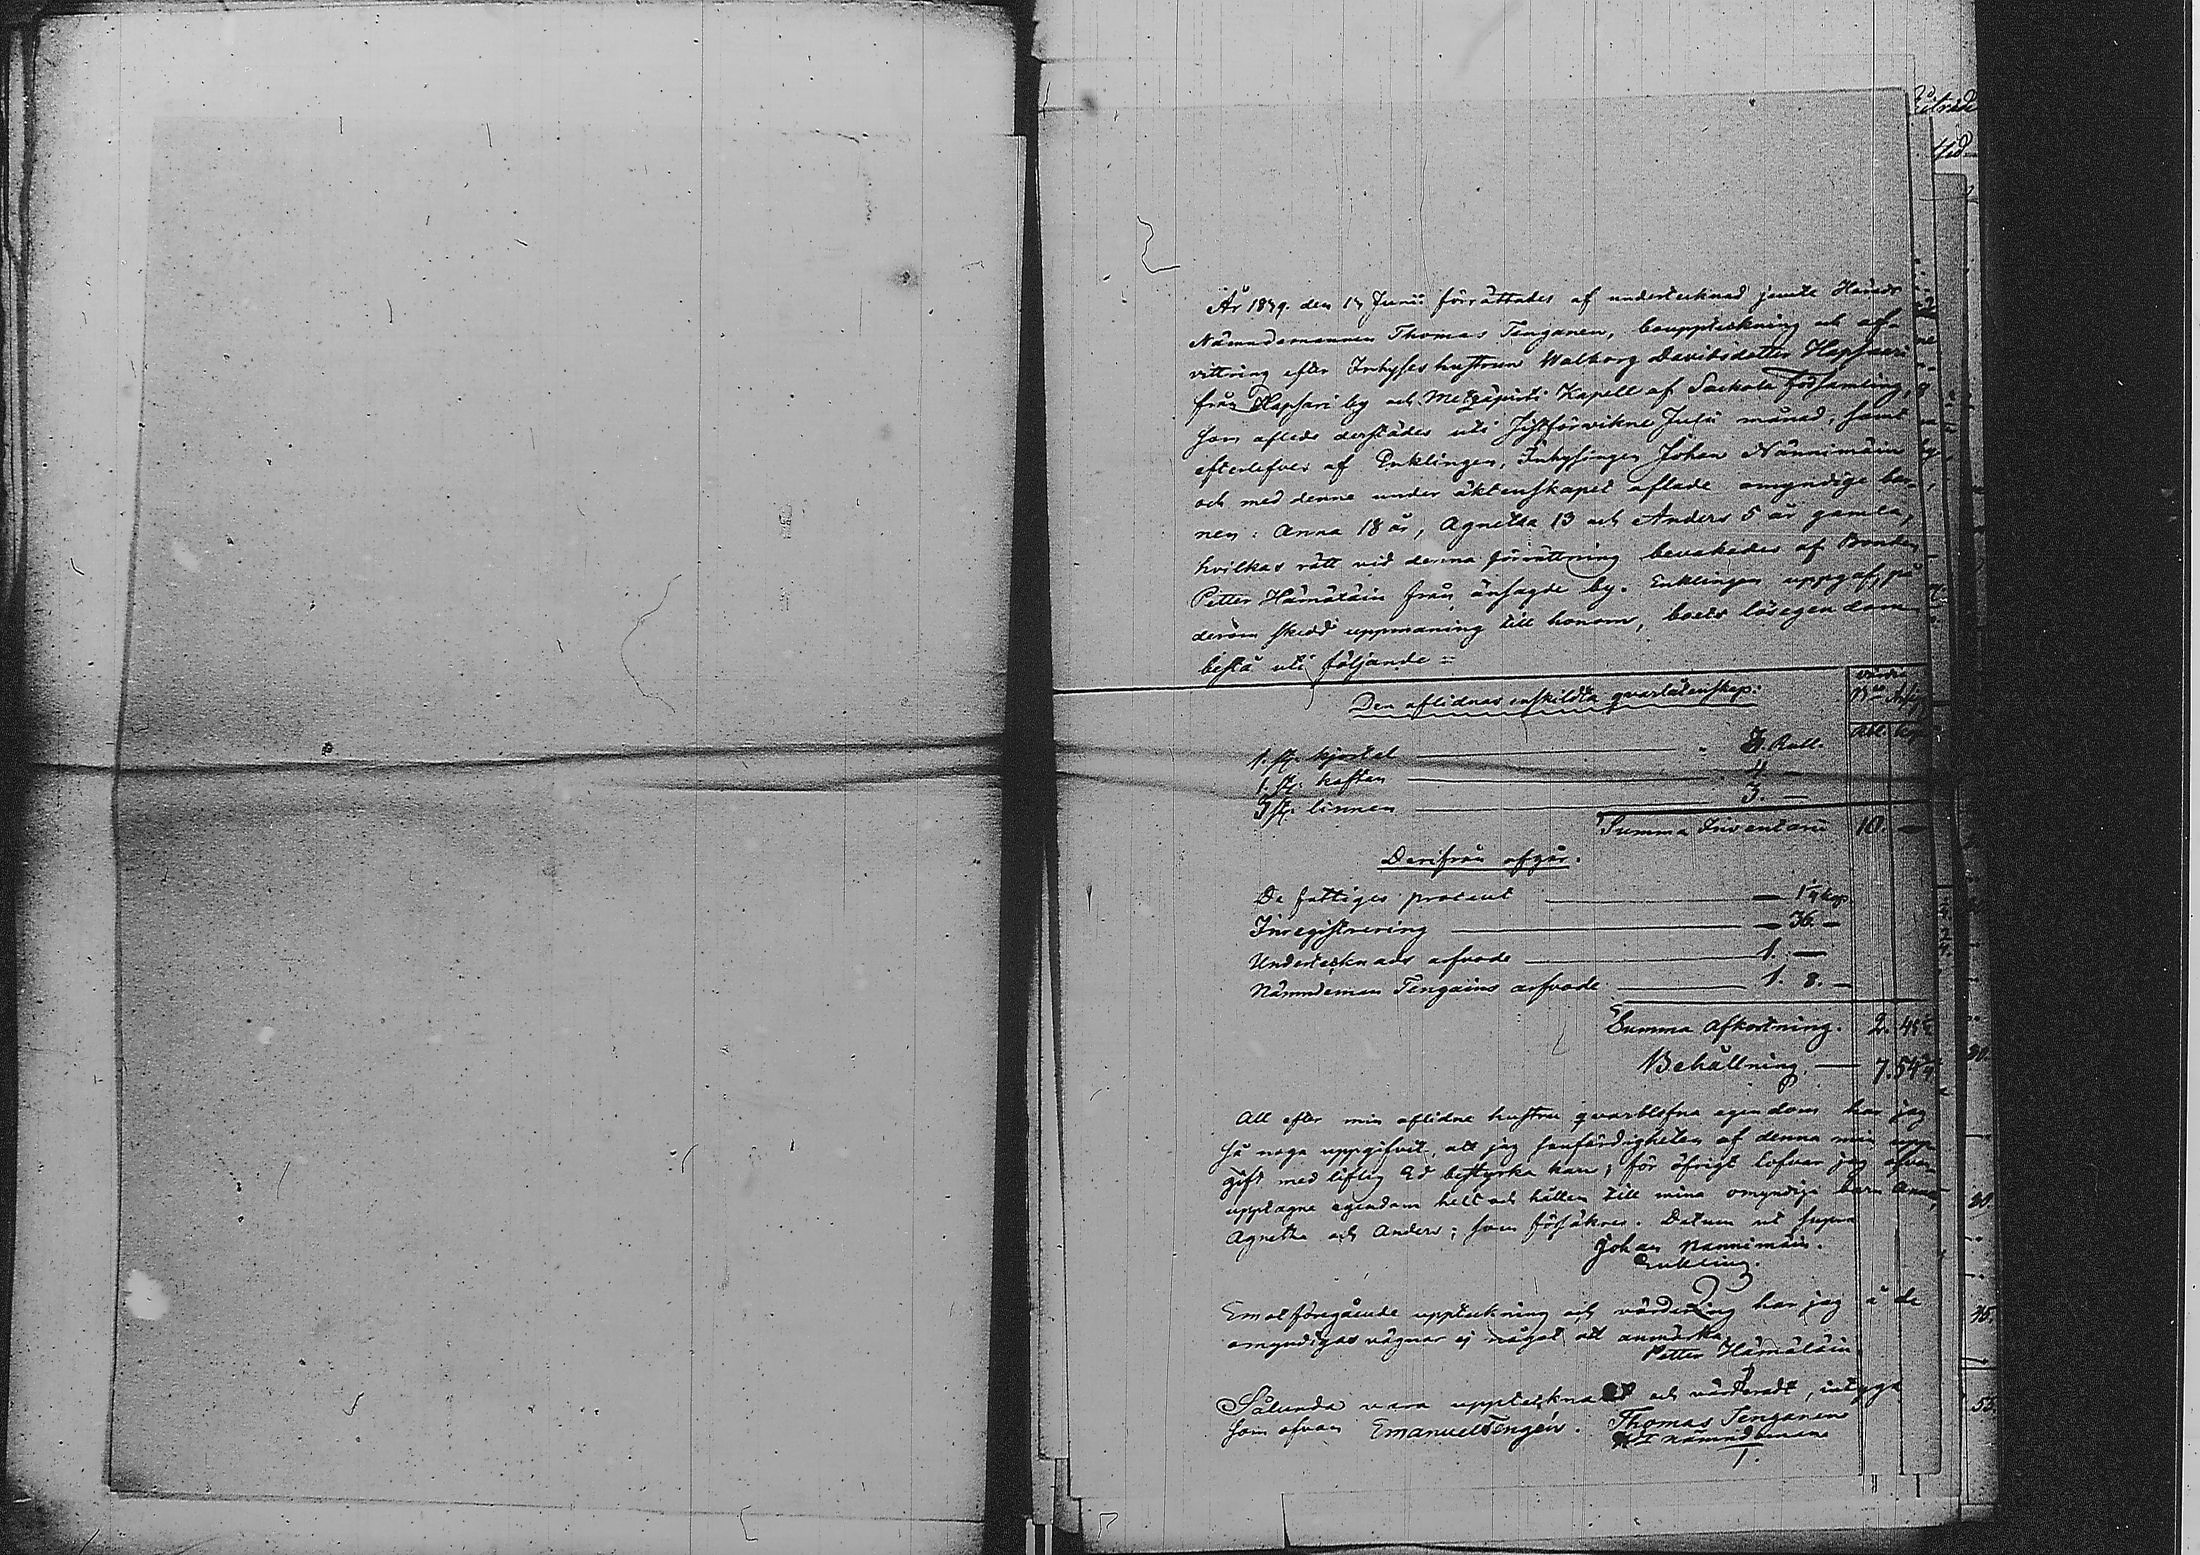 År 1839. den 17 Junii förrättades af undertecknad jemte Härads
Nämndemannen Thomas Tenganen, bouppteckning och af-
vittring efter Inhyses hustrun Walborg Davidsdotter Hapsari
från Hapsari by och Metzäpirti Kapell af Sackola Församling,
som afled derstädes uti sistförvikne Julii månad, samt
efterlefves af Enklingen, Inhysingen Johan Nännimäin
och med denne under äktenskapet aflade omyndige bar-
nen: Anna 18 år, Agnetha 13 och Anders 5 år gamla,
hvilkas rätt vid denna förrättning bevakades af Bonden
Petter Hämäläin från änsagde by. Enklingen uppgaf, på
derom skedd uppmaning till honom, boets lösegendom
bestå uti följande:
Den aflidnas enskildta qvarlåtenskap.
Rbl. kop
1. st. kjortel 3. Rubl.
1. st. kaftan 4 —
3 st. linnen 3. —
Summa Inventarii 10. —
Derifrån afgår.
De fattiges procent — 1 1/4 kop
Inregistrering — 36. —
Undertecknads arfvode 1. —
Nämndeman Tengains arfvode 1. 8. —
Summa Afkortning. 2. 45 1/4
Behållning — 7. 54 3/4
All efter min aflidna hustru qvarblefna egendom har jag
så noga uppgifvit, att jag sanfärdigheten af denna min upp-
gift med liflig Ed bestyrka kan; för öfrigt lofvar jag ofvan
upptagne egendom helt och hållen till mina omyndiga barn Anna,
Agnetha och Anders; som försäkras. Datum ut supra
Johan Nännimäin.
Enkling.
Emot föregående uppteckning och värdering har jag å de
omyndigas vägnar ej något att anmärka.
Petter Hämäläin
Sålunda vara upptecknadt och värderadt, intyga
som ofvan Emanuel Tengén. Thomas Tenganen
nämndeman